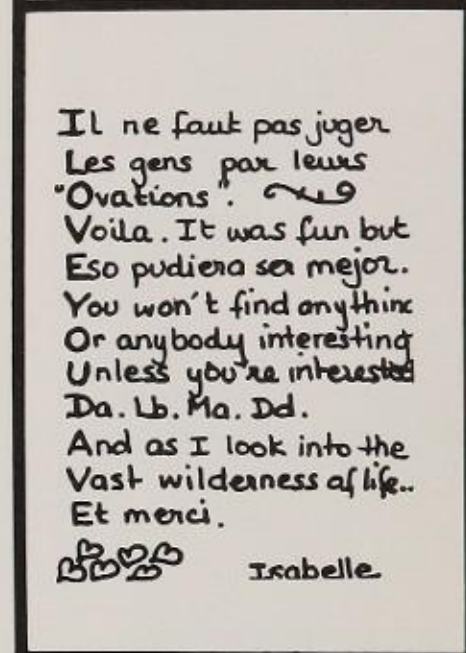 Il ne faut pas juger
Les gens par leurs
"Ovations".
Voila. It was fun but
Eso pudiera ser mejor.
You won't find anything
Or anybody interesting
Unless you're interested
Da. Lb. Ma. Dd.
And as I look into the
Vast wilderness of life..
Et merci.
Isabelle